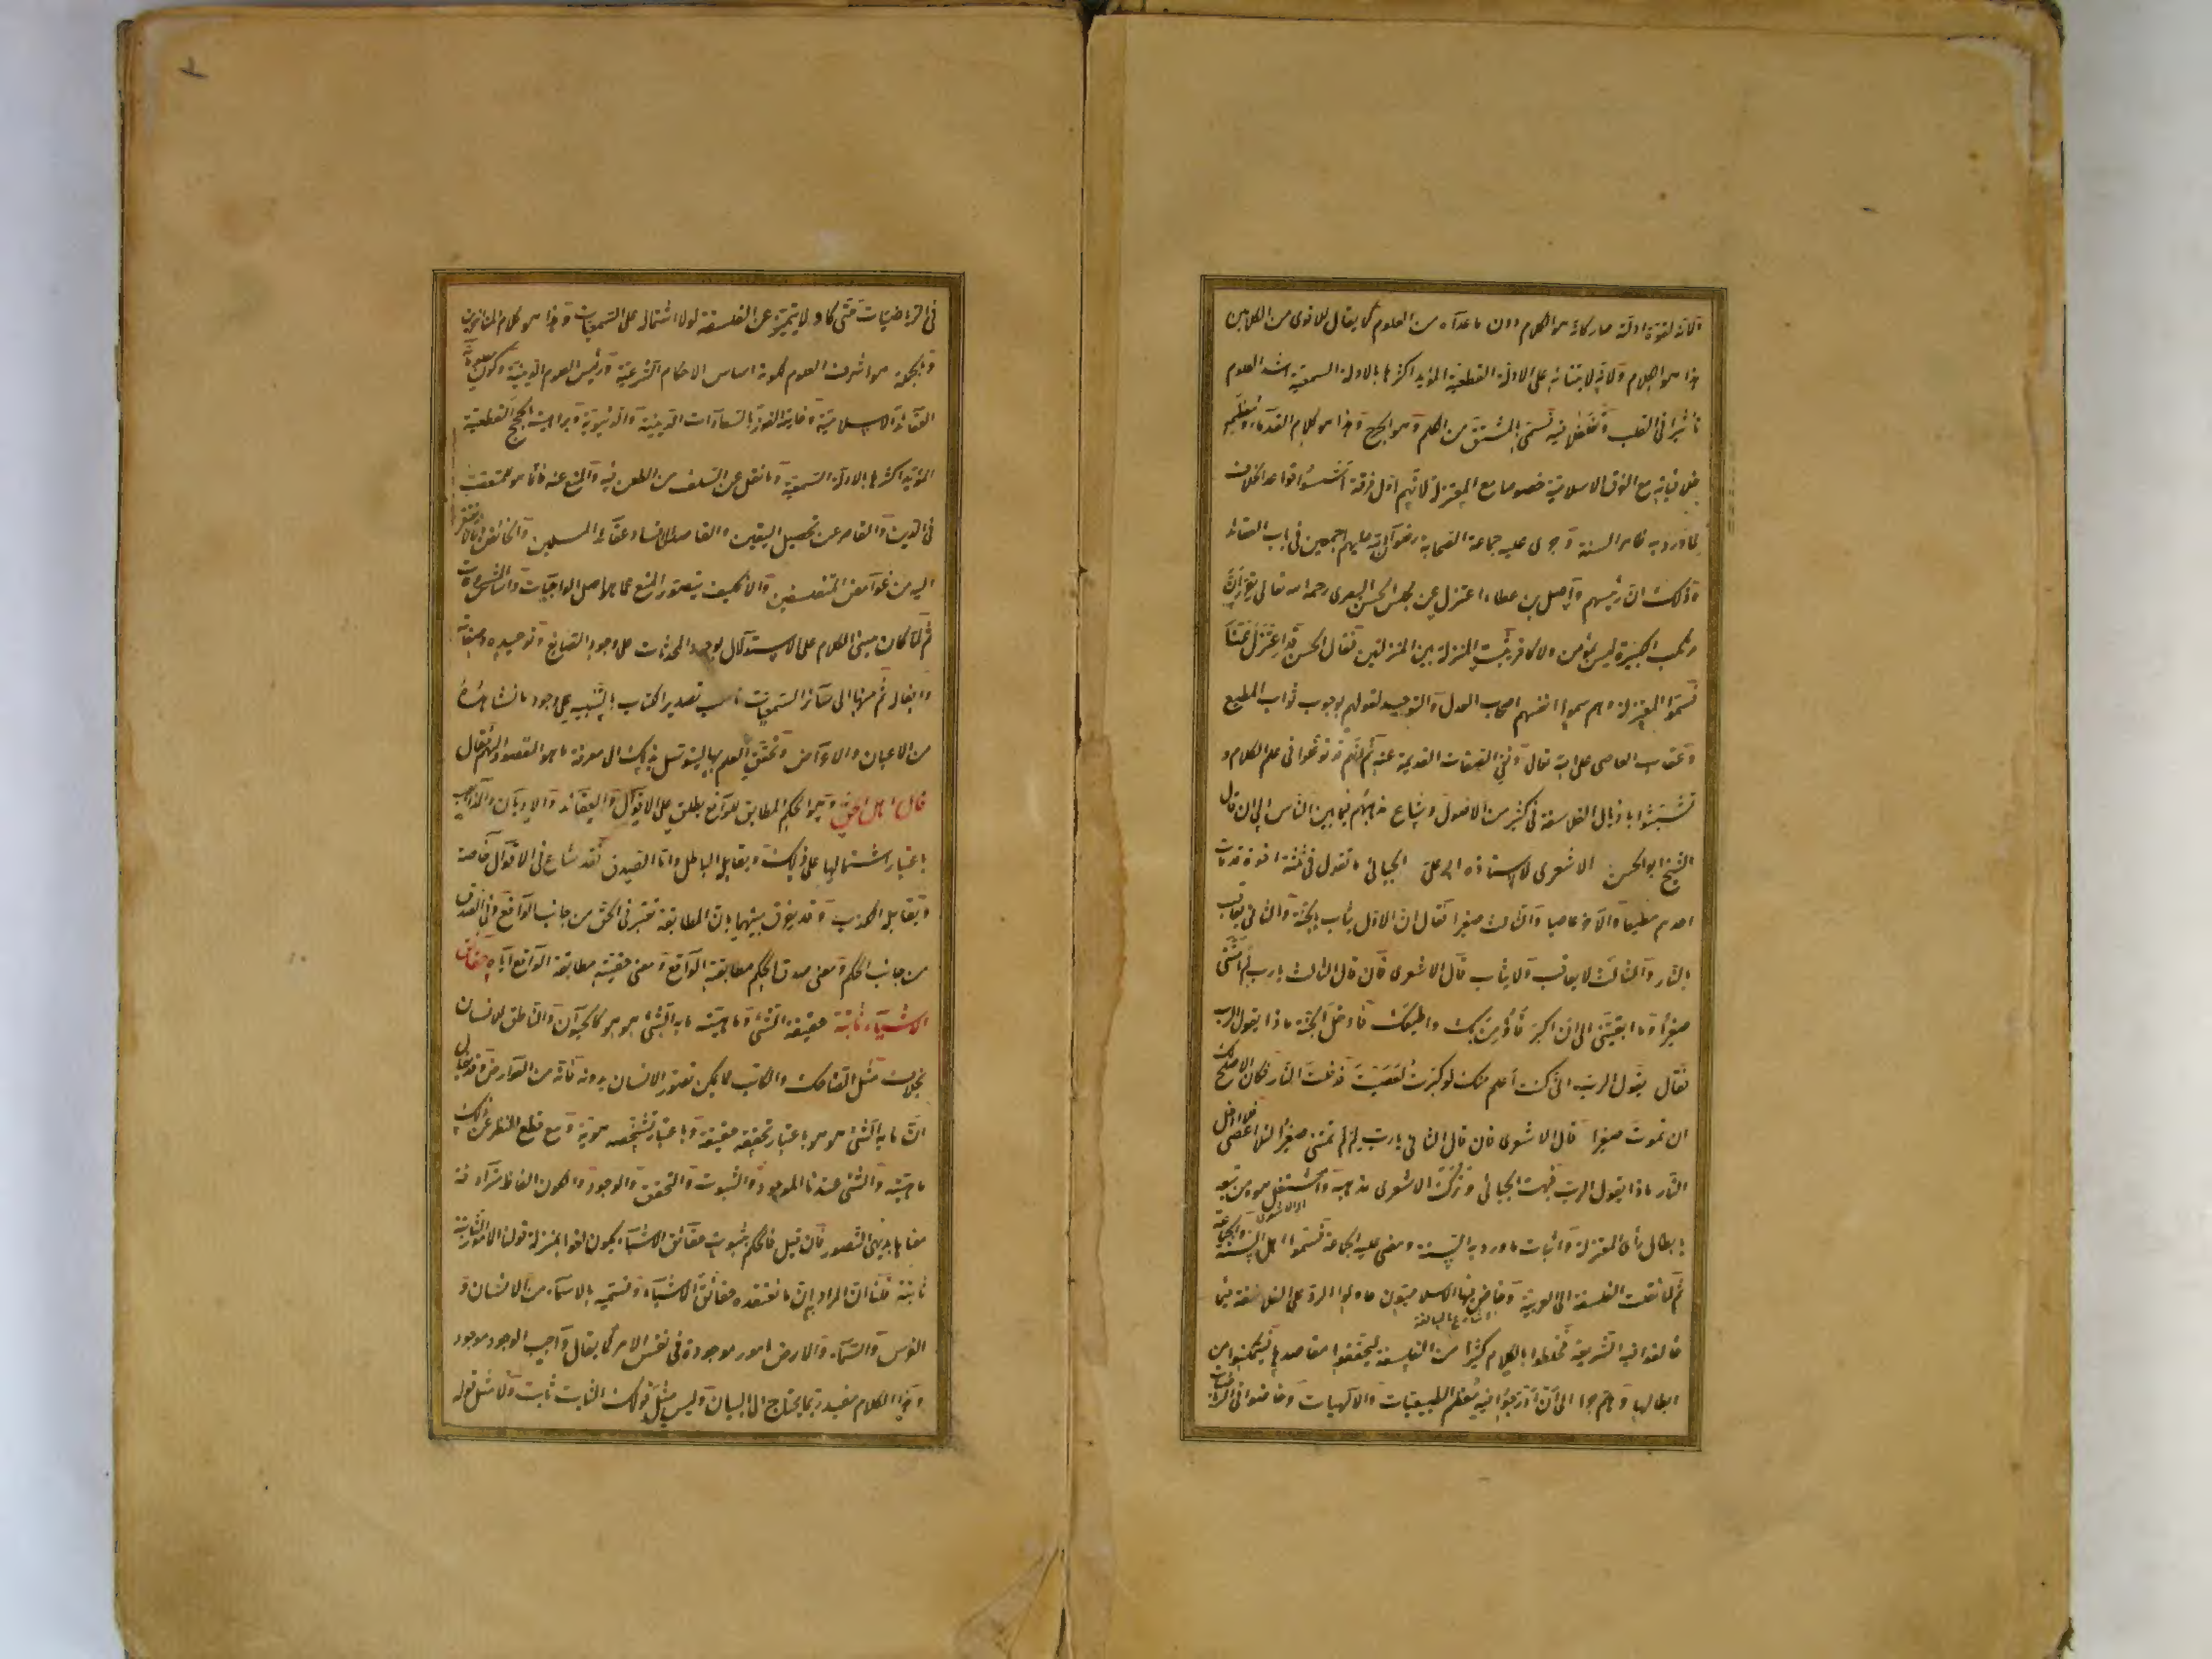 ولانه لقوة ادلته صار كانه هو الكلام دون ما عداه من العلوم كما يقال للاقوى من الكلامين
هذا هو الكلام ولانه لابتنائه على الادلة القطعية المؤيد اكثرها بالادلة السمعية اشد العلوم
تأثيرا في القلب وتغلغلا فيه فسمى بالمشتق من الكلم وهو الجرح وهذا هو كلام القدماء ومعظم
خلافياته مع الفرق الاسلامية خصوصا مع المعتزلة لانهم اول فرقة اسسوا قواعد الخلاف
لما ورد به ظاهر السنة وجرى عليه جماعة الصحابة رضوان الله عليهم اجمعين في باب العقائد
وذلك ان رئيسهم واصل بن عطاء اعتزل عن مجلس الحسن البصرى رحمه الله تعالى يقرر ان
مرتكب الكبيرة ليس بمؤمن ولا كافر ويثبت المنزلة بين المنزلتين فقال الحسن قد اعتزل عنا
فسموا المعتزلة وهم سموا انفسهم اصحاب العدل والتوحيد لقولهم بوجوب ثواب المطيع
وعقاب العاصى على الله تعالى ونفي الصفات القديمة عنه ثم انهم توغلوا في علم الكلام و
تشبثوا باذيال الفلاسفة في كثير من الاصول وشاع مذهبهم فيما بين الناس الى ان قال
الشيخ ابو الحسن الاشعرى لاستاذه ابي على الجبائى ما تقول في ثلثة اخوة مات
احدهم مطيعا والآخر عاصيا والثالث صغيرا فقال ان الاول يثاب بالجنة والثاني يعاقب
بالنار والثالث لا يعاقب ولا يثاب قال الاشعرى فان قال الثالث يارب لم امتنى
صغيرا وما ابقيتنى الى ان اكبر فأومن بك واطيعك فادخل الجنة ماذا يقول الرب
فقال يقول الرب انى كنت اعلم منك لو كبرت لعصيت فدخلت النار فكان الاصلح لك
ان تموت صغيرا قال الاشعرى فان قال الثاني يارب لم لم تمتنى صغيرا لئلا اعصى فلا ادخل
النار ماذا يقول الرب فبهت الجبائى وترك الاشعرى مذهبه واشتغل هو ومن تبعه
بابطال رأى المعتزلة واثبات ما ورد به السنة ومضى عليه الجماعة فسموا اهل السنة والجماعة
ثم لما نقلت الفلسفة الى العربية وخاض فيها الاسلاميون حاولوا الرد على الفلاسفة فيما
خالفوا فيه الشريعة فخلطوا بالكلام كثيرا من الفلسفة ليحققوا مقاصدها فيتمكنوا من
ابطالها وهلم جرا الى ان ادرجوا فيه معظم الطبيعيات والالهيات وخاضوا في الرياضيات
في الرياضيات حتى كاد لا يتميز عن الفلسفة لولا اشتماله على السمعيات وهذا هو كلام المتأخرين
وبالجملة هو اشرف العلوم لكونه اساس الاحكام الشرعية ورئيس العلوم الدينية وكون معلوماته
العقائد الاسلامية وغايته الفوز بالسعادات الدينية والدنيوية وبراهينه الحجج القطعية
المؤيد اكثرها بالادلة السمعية وما نقل عن السلف من الطعن فيه والمنع عنه فانما هو للمتعصب
في الدين والقاصر عن تحصيل اليقين والقاصد الى افساد عقائد المسلمين والخائض فيما لا يفتقر
اليه من غوامض المتفلسفين والا فكيف يتصور المنع عما هو اصل الواجبات واساس المشروعات
ثم لما كان مبنى الكلام على الاستدلال بوجود المحدثات على وجود الصانع وتوحيده وصفاته
وافعاله ثم منها الى سائر السمعيات ناسب تصدير الكتاب بالتنبيه على وجود ما نشاهد
من الاعيان والاعراض وتحقق العلم بها ليتوسل بذلك الى معرفة ما هو المقصود الاهم فقال
قال اهل الحق وهو الحكم المطابق للواقع يطلق على الاقوال والعقائد والاديان والمذاهب
باعتبار اشتمالها على ذلك ويقابله الباطل واما الصدق فقد شاع في الاقوال خاصة
ويقابله الكذب وقد يفرق بينهما بان المطابقة تعتبر في الحق من جانب الواقع وفي الصدق
من جانب الحكم ومعنى صدق الحكم مطابقته الواقع ومعنى حقيته مطابقة الواقع اياه حقائق
الاشياء ثابتة حقيقة الشئ وماهيته ما به الشئ هو هو كالحيوان والناطق للانسان
بخلاف مثل الضاحك والكاتب مما يمكن تصور الانسان بدونه فانه من العوارض وقد يقال
ان ما به الشئ هو هو باعتبار تحققه حقيقة وباعتبار تشخصه هوية ومع قطع النظر عن ذلك
ماهية والشئ عندنا الموجود والثبوت والتحقق والوجود والكون الفاظ مترادفة
معناها بديهى التصور فان قيل فالحكم بثبوت حقائق الاشياء يكون لغوا بمنزلة قولنا الامور الثابتة
ثابتة قلنا ان المراد به ان ما نعتقده حقائق الاشياء ونسميه بالاسماء من الانسان و
الفرس والسماء والارض امور موجودة في نفس الامر كما يقال واجب الوجود موجود
وهذا الكلام مفيد ربما يحتاج الى البيان وليس مثل قولك الثابت ثابت ولا مثل قوله